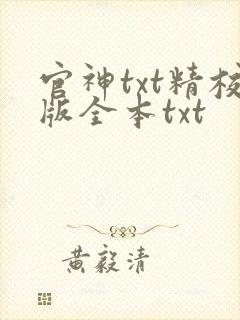 官神txt精校
版全本txt
黄毅清